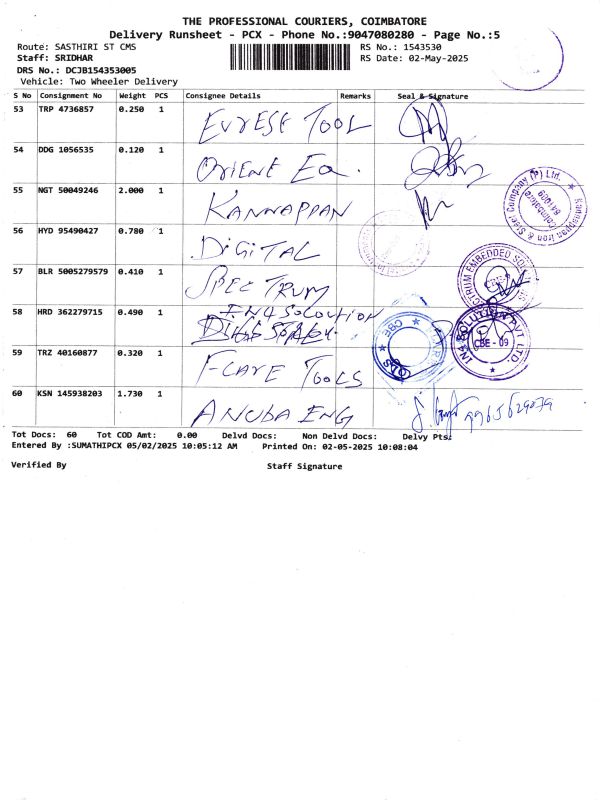 THE PROFESSIONAL COURIERS, COIMBATORE
Delivery Runsheet - PCX - Phone No.:9047080280 - Page No.:5
Route: SASTHIRI ST CMS RS No.: 1543530
Staff: SRIDHAR RS Date: 02-May-2025
DRS No.: DCJB154353005
Vehicle: Two Wheeler Delivery
S No Consignment No Weight PCS Consignee Details Remarks Seal & Signature
53 TRP 4736857 0.250 1 EVREST TOOL
54 DDG 1056535 0.120 1 ORIENT Eq.
55 NGT 50049246 2.000 1 KANNAPPAN
Kannappan Iron & Steel Company (P) Ltd.
Coimbatore
641009
56 HYD 95490427 0.780 1 DIGITAL
57 BLR 5005279579 0.410 1 SPECTRUM
58 HRD 362279715 0.490 1 IN4 SOLOUTION
CBE
IN4 SOLUTION PVT LTD.
CBE - 09
59 TRZ 40160877 0.320 1 F-CARE TOOLS
60 KSN 145938203 1.730 1 ANUBA ENG
Tot Docs: 60 Tot COD Amt: 0.00 Delvd Docs: Non Delvd Docs: Delvy Pts:
Entered By :SUMATHIPCX 05/02/2025 10:05:12 AM Printed On: 02-05-2025 10:08:04
Verified By Staff Signature